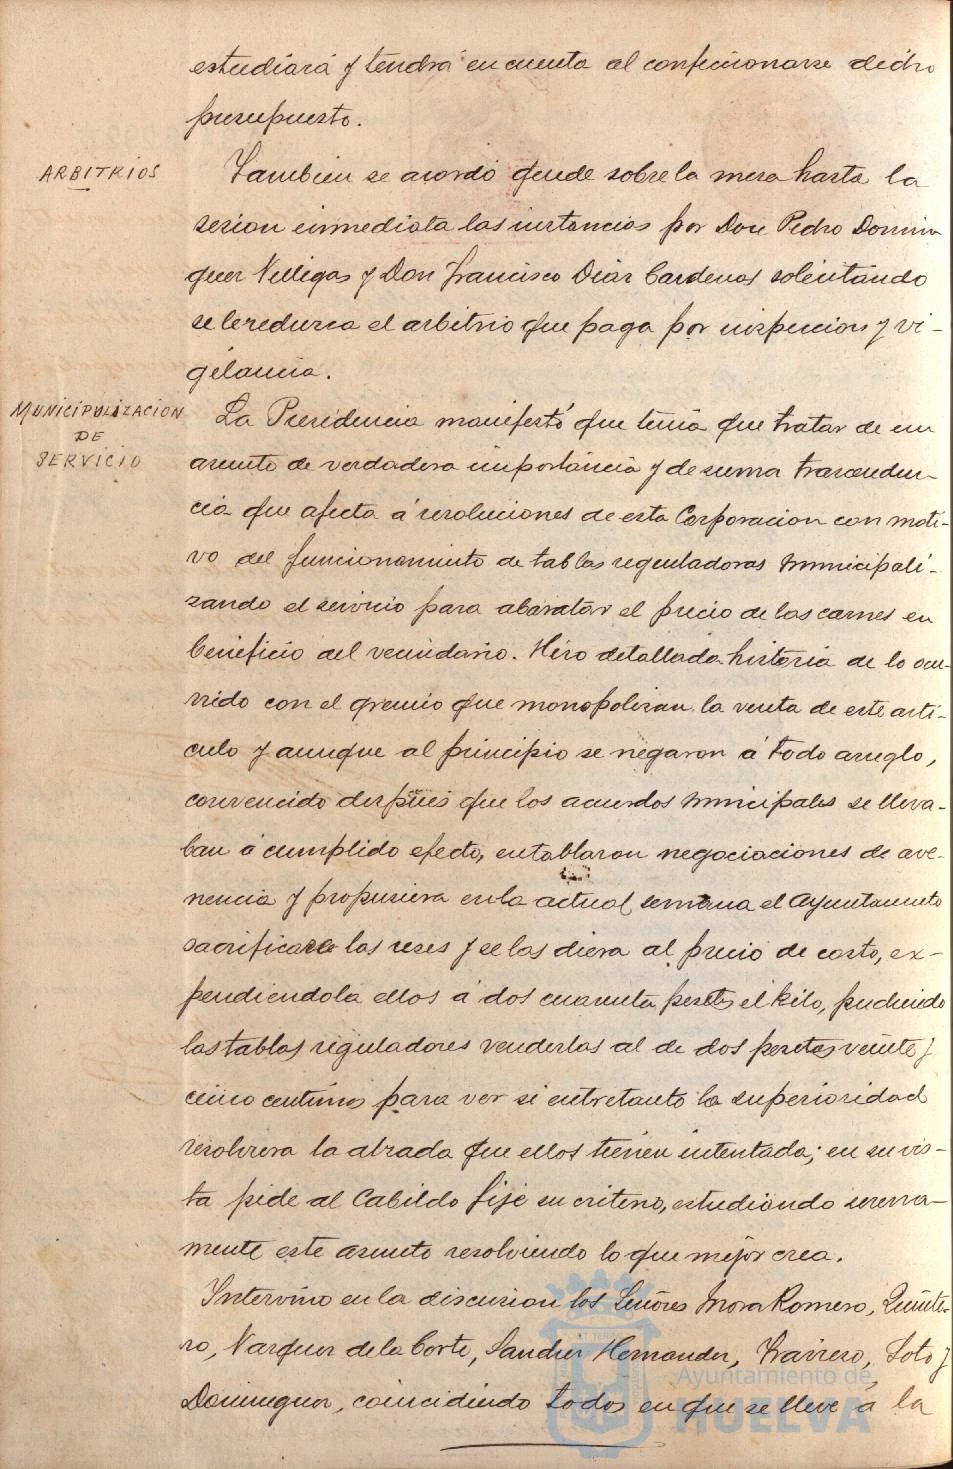 estudiará y tendrá en cuenta al confeccionarse dicho
presupuesto.
ARBITRIOS
Tambien se acordó quede sobre la mesa hasta la
sesion inmediata las instancias por Don Pedro Domin
guez Villegas y Don Francisco Diaz Cardenas solicitando
se le reduzca el arbitrio que paga por inspeccion y vi-
gilancia.
MUNICIPALIZACION
DE
SERVICIO
La Presidencia manifestó que tenia que tratar de un
asunto de verdadera importancia y de suma trascenden-
cia que afecta á resoluciones de esta Corporacion con moti-
vo del funcionamiento de tablas reguladoras municipali-
zando el servicio para abaratar el precio de las carnes en
beneficio del vecindario. Hizo detallada historia de lo ocu-
rrido con el gremio que monopolizan la venta de este arti-
culo y aunque al principio se negaron á todo arreglo,
convencido despues que los acuerdos municipales se lleva-
ban á cumplido efecto, entablaron negociaciones de ave-
nencia y propusiera en la actual semana el Ayuntamiento
sacrificase las reses y se las diera al precio de costo, ex-
pendiendola ellos á dos cuarenta pesetas el kilo, pudiendo
las tablas reguladores venderlas al de dos pesetas veinte y
cinco centimos para ver si entretanto la superioridad
resolviera la alzada que ellos tienen intentada; en su vis-
ta pide al Cabildo fije su criterio, estudiando serena-
mente este asunto resolviendo lo que mejor crea.
Intervino en la discusion los Señores Mora Romero, Quinte-
ro, Vazquez de la Corte, Sanchez Hernandez, Barrero, Soto y
Dominguez, coincidiendo todos en que se lleve á la
Ayuntamiento de
HUELVA